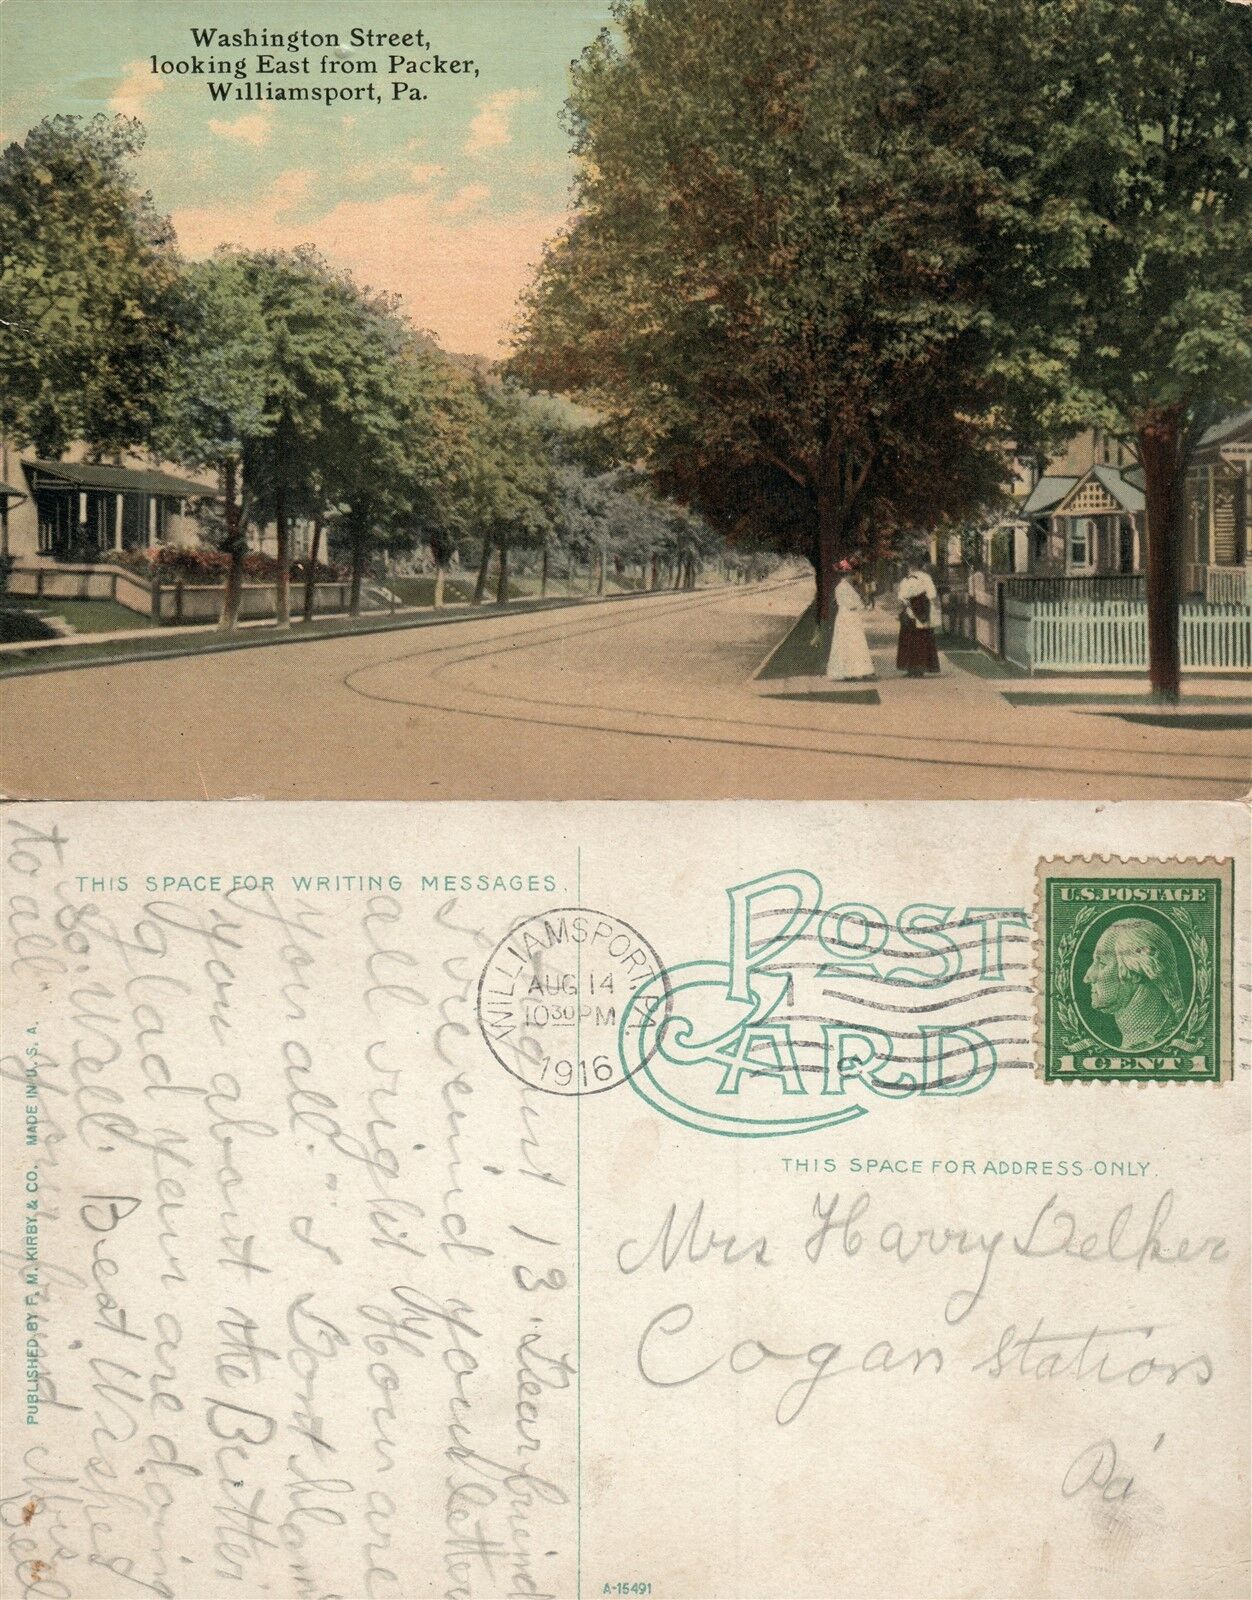 Washington Street,
looking East from Packer,
Williamsport, Pa.
THIS SPACE FOR WRITING MESSAGES.
August 13 Dear friend
I received your letter
all right How are
you all. is
you about the Butter
glad you are doing
so well. Best Wishes
to all. your friend Mrs Bell
PUBLISHED BY F. M. KIRBY & CO. MADE IN U. S. A.
WILLIAMSPORT, PA.
AUG 14
10 30 PM
1916
POST
CARD
U.S. POSTAGE
1 CENT 1
THIS SPACE FOR ADDRESS ONLY.
Mrs Harry Delker
Cogan Station
Pa
A-15491